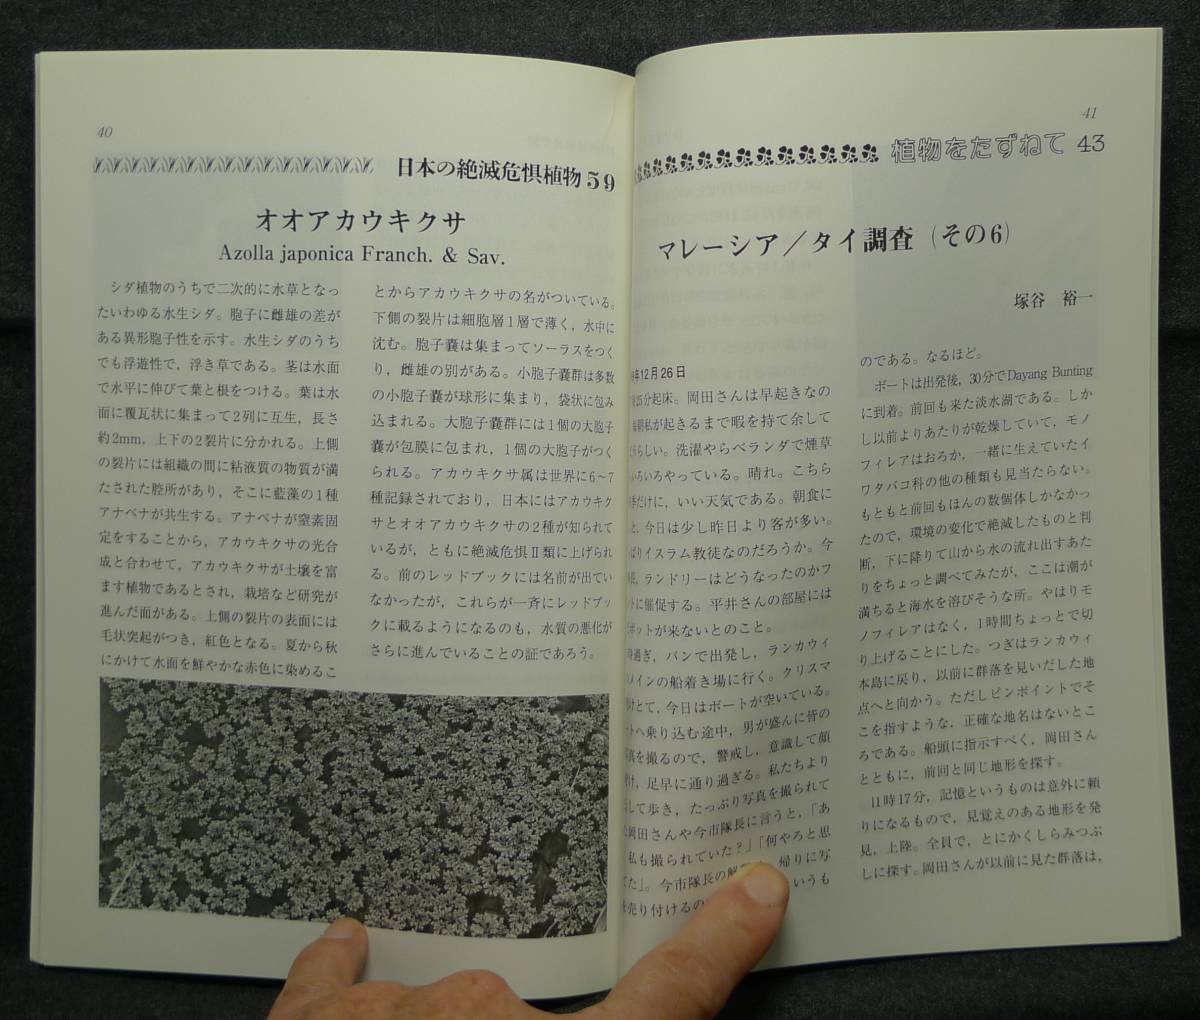 40
日本の絶滅危惧植物 59
オオアカウキクサ
Azolla japonica Franch. & Sav.
シダ植物のうちで二次的に水草となっ
たいわゆる水生シダ。胞子に雌雄の差が
ある異形胞子性を示す。水生シダのうち
でも浮遊性で，浮き草である。茎は水面
で水平に伸びて葉と根をつける。葉は水
面に覆瓦状に集まって2列に互生，長さ
約2mm，上下の2裂片に分かれる。上側
の裂片には組織の間に粘液質の物質が満
たされた腔所があり，そこに藍藻の1種
アナベナが共生する。アナベナが窒素固
定をすることから，アカウキクサの光合
成と合わせて，アカウキクサが土壌を富
ます植物であるとされ，栽培など研究が
進んだ面がある。上側の裂片の表面には
毛状突起がつき，紅色となる。夏から秋
にかけて水面を鮮やかな赤色に染めるこ
とからアカウキクサの名がついている。
下側の裂片は細胞層1層で薄く，水中に
沈む。胞子嚢は集まってソーラスをつく
り，雌雄の別がある。小胞子嚢群は多数
の小胞子嚢が球形に集まり，袋状に包み
込まれる。大胞子嚢群には1個の大胞子
嚢が包膜に包まれ，1個の大胞子がつく
られる。アカウキクサ属は世界に6〜7
種記録されており，日本にはアカウキク
サとオオアカウキクサの2種が知られて
いるが，ともに絶滅危惧Ⅱ類に上げられ
る。前のレッドブックには名前が出てい
なかったが，これらが一斉にレッドブッ
クに載るようになるのも，水質の悪化が
さらに進んでいることの証であろう。
41
植物をたずねて 43
マレーシア／タイ調査（その6）
塚谷 裕一
年12月26日
25分起床。岡田さんは早起きなの
朝私が起きるまで暇を持て余して
らしい。洗濯やらベランダで煙草
いろいろやっている。晴れ。こちら
だけに，いい天気である。朝食に
と，今日は少し昨日より客が多い。
ぱりイスラム教徒なのだろうか。今
，ランドリーはどうなったのかフ
トに催促する。平井さんの部屋には
ポットが来ないとのこと。
過ぎ，バンで出発し，ランカウィ
メインの船着き場に行く。クリスマ
けとて，今日はボートが空いている。
トへ乗り込む途中，男が盛んに皆の
真を撮るので，警戒し，意識して顔
け，足早に通り過ぎる。私たちより
して歩き，たっぷり写真を撮られて
岡田さんや今市隊長に言うと，「あ
私も撮られていた？」「何やろと思
てた」。今市隊長の解 ，帰りに写
を売り付けるの いうも
のである。なるほど。
ボートは出発後，30分でDayang Bunting
に到着。前回も来た淡水湖である。しか
し以前よりあたりが乾燥していて，モノ
フィレアはおろか，一緒に生えていたイ
ワタバコ科の他の種類も見当たらない。
もともと前回もほんの数個体しかなかっ
たので，環境の変化で絶滅したものと判
断，下に降りて山から水の流れ出すあた
りをちょっと調べてみたが，ここは潮が
満ちると海水を溶びそうな所。やはりモ
ノフィレアはなく，1時間ちょっとで切
り上げることにした。つぎはランカウィ
本島に戻り，以前に群落を見いだした地
点へと向かう。ただしピンポイントでそ
こを指すような，正確な地名はないとこ
ろである。船頭に指示すべく，岡田さん
とともに，前回と同じ地形を探す。
11時17分，記憶というものは意外に頼
りになるもので，見覚えのある地形を発
見，上陸。全員で，とにかくしらみつぶ
しに探す。岡田さんが以前に見た群落は，